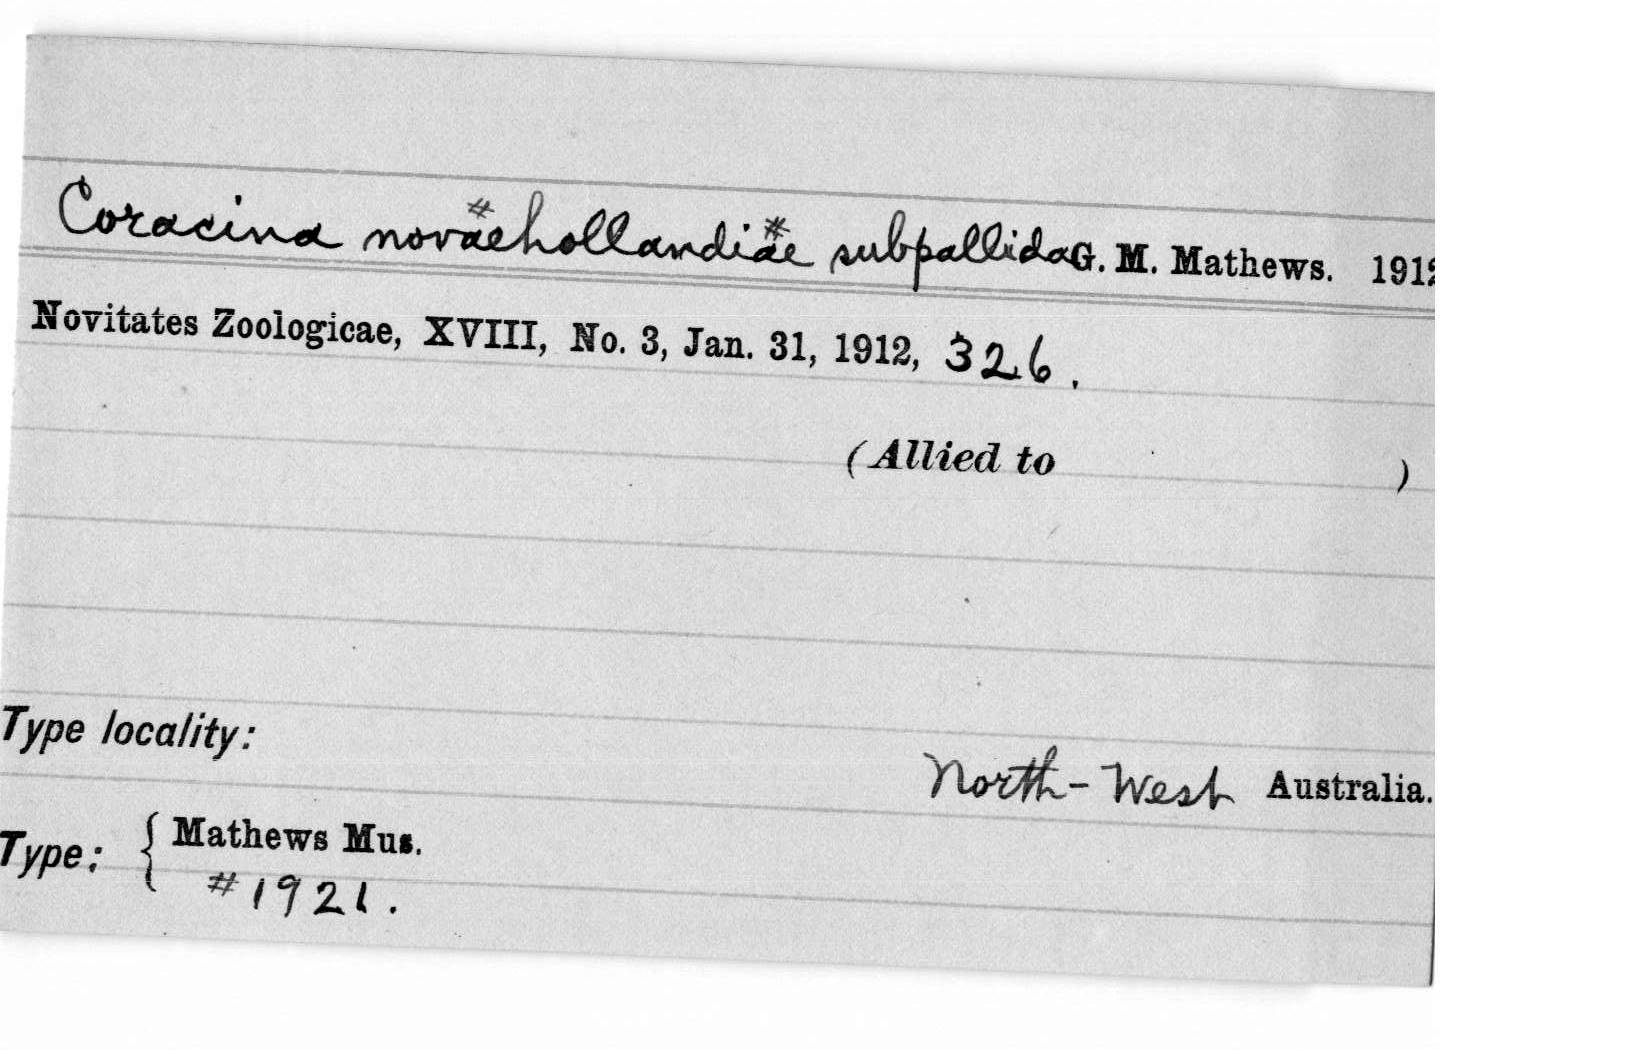 Coracina novaehollandiae subpallida G. M. Mathews. 1912
Novitates Zoologicae, XVIII, No. 3, Jan. 31, 1912, 326.
(Allied to )
Type locality:
North-West Australia.
Type: { Mathews Mus.
#1921.